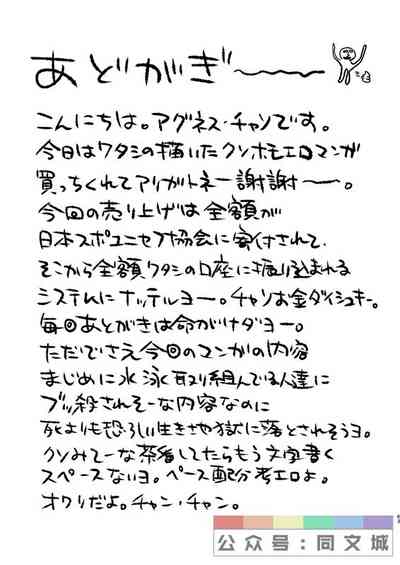 あとがき〜
こんにちは。アグネス・チャンです。
今日はワタシの描いたクソホモエロマンガ
買ってくれてアリガトネー 謝謝ー。
今回の売り上げは全額が
日本スポユニセフ協会に寄付されて、
そこから全額ワタシの口座に振り込まれる
システムにナッテルヨー。チャンお金ダイシュキー。
毎回あとがきは命がけダヨー。
ただでさえ今回のマンガの内容
まじめに水泳取り組んでいる人達に
ブッ殺されそーな内容なのに
死よりも恐ろしい生き地獄に落とされそうヨ。
クソみてーな茶番してたらもう文字書く
スペースないヨ。ペース配分考エロよ。
オワリだよ。チャン・チャン。
公众号:同文城